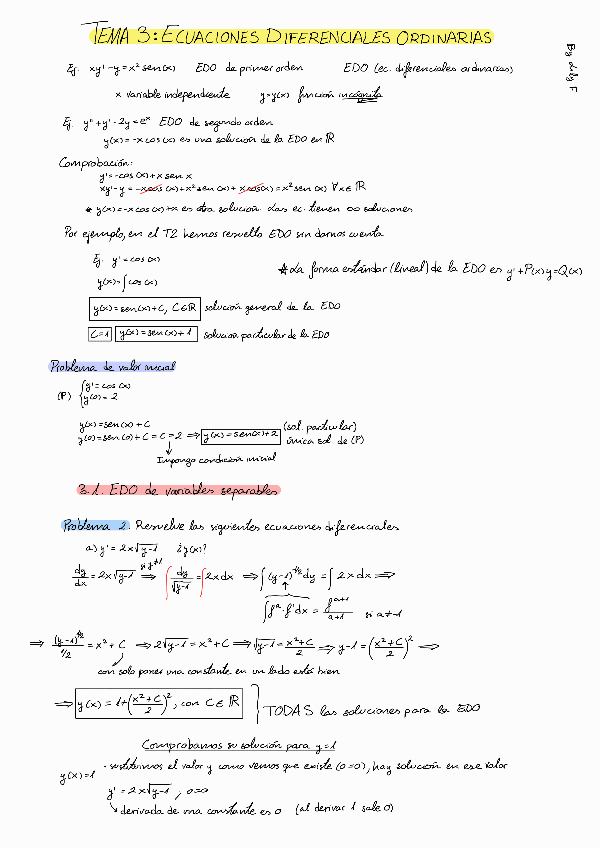 TEMA 3: ECUACIONES DIFERENCIALES ORDINARIAS
By Lily F
Ej. xy' - y = x² sen(x) EDO de primer orden EDO (ec. diferenciales ordinarias)
x variable independiente y=y(x) función incógnita
Ej. y'' + y' - 2y = eˣ EDO de segundo orden
y(x) = -x cos(x) es una solución de la EDO en ℝ
Comprobación:
y' = -cos(x) + x sen x
xy' - y = -x cos(x) + x² sen(x) + x cos(x) = x² sen(x) ∀x ∈ ℝ
* y(x) = -x cos(x) + x es otra solución. Las ec. tienen ∞ soluciones
Por ejemplo, en el T2 hemos resuelto EDO sin darnos cuenta
Ej. y' = cos(x)
* La forma estándar (lineal) de la EDO es y' + P(x)y = Q(x)
y(x) = ∫ cos(x)
y(x) = sen(x) + C, C∈ℝ solución general de la EDO
C=1 y(x) = sen(x) + 1 solución particular de la EDO
Problema de valor inicial
(P) { y' = cos(x)
y(0) = 2
y(x) = sen(x) + C
y(0) = sen(0) + C = C = 2 ⇒ y(x) = sen(x) + 2 (sol. particular) única sol. de (P)
Impongo condición inicial
3.1. EDO de variables separables
Problema 2. Resuelve las siguientes ecuaciones diferenciales
a) y' = 2x√y-1 ¿y(x)?
dy/dx = 2x√y-1 ⇒ si y≠1 ∫ dy/√y-1 = ∫ 2x dx ⇒ ∫ (y-1)^-1/2 dy = ∫ 2x dx ⇒
∫ fᵃ · f' dx = fᵃ⁺¹/a+1 si a≠-1
⇒ (y-1)^1/2 / 1/2 = x² + C ⇒ 2√y-1 = x² + C ⇒ √y-1 = x²+C/2 ⇒ y-1 = (x²+C/2)² ⇒
con solo poner una constante en un lado está bien
⇒ y(x) = 1 + (x²+C/2)², con C∈ℝ } TODAS las soluciones para la EDO
Comprobamos su solución para y=1
y(x)=1 · sustituimos el valor y como vemos que existe (0=0), hay solución en ese valor
y' = 2x√y-1, 0=0
derivada de una constante es 0 (al derivar 1 sale 0)